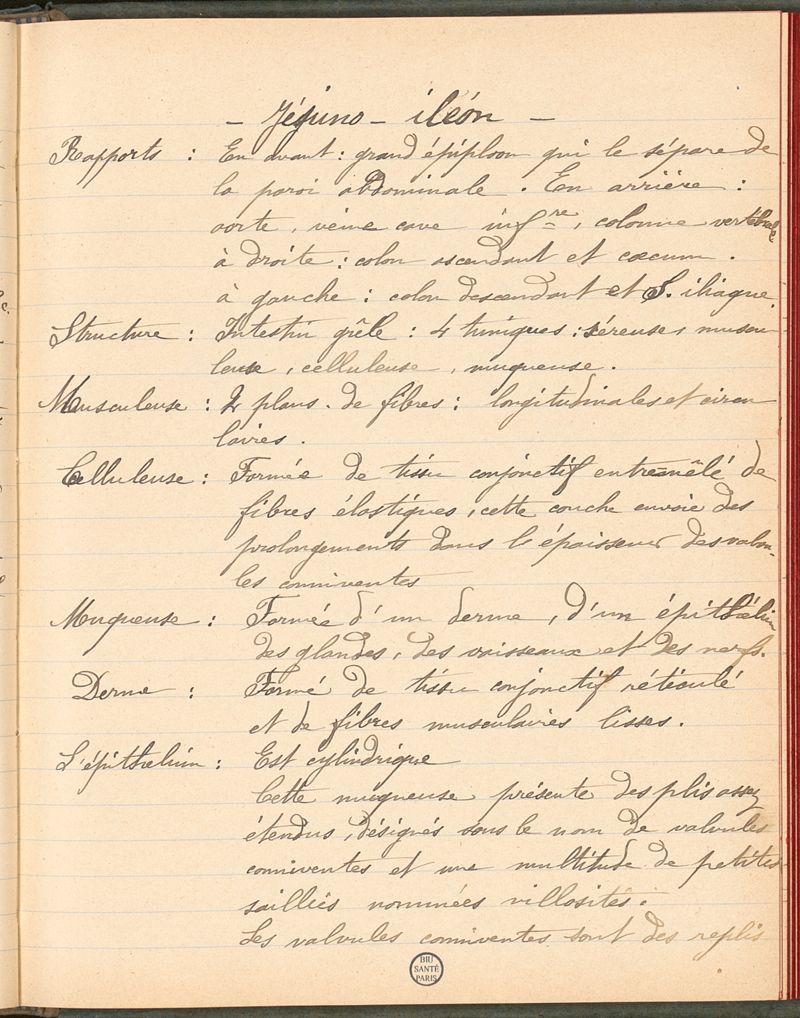 - Jéjuno - iléon -
Rapports : En avant : grand épiploon qui le sépare de
la paroi abdominale. En arrière :
aorte, veine cave infre, colonne vertébrale
à droite : colon ascendant et cœcum.
à gauche : colon descendant et S. iliaque.
Structure : Intestin grêle : 4 tuniques : séreuse, muscu
leuse, celluleuse, muqueuse.
Musculeuse : 2 plans de fibres : longitudinales et circu
laires.
Celluleuse : Formée de tissu conjonctif entremêlé de
fibres élastiques, cette couche envoie des
prolongements dans l'épaisseur des valvu-
les conniventes
Muqueuse : Formée d'un derme, d'un épithélium
des glandes, des vaisseaux et des nerfs.
Derme : Formé de tissu conjonctif réticulé
et de fibres musculaires lisses.
L'épithelium : Est cylindrique
Cette muqueuse présente des plis assez
étendus, désignés sous le nom de valvules
conniventes et une multitude de petites
saillies nommées villosités.
Les valvules conniventes sont des replis
BIU
SANTÉ
PARIS